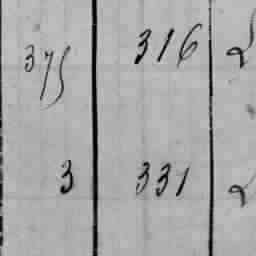 375 316
3 331